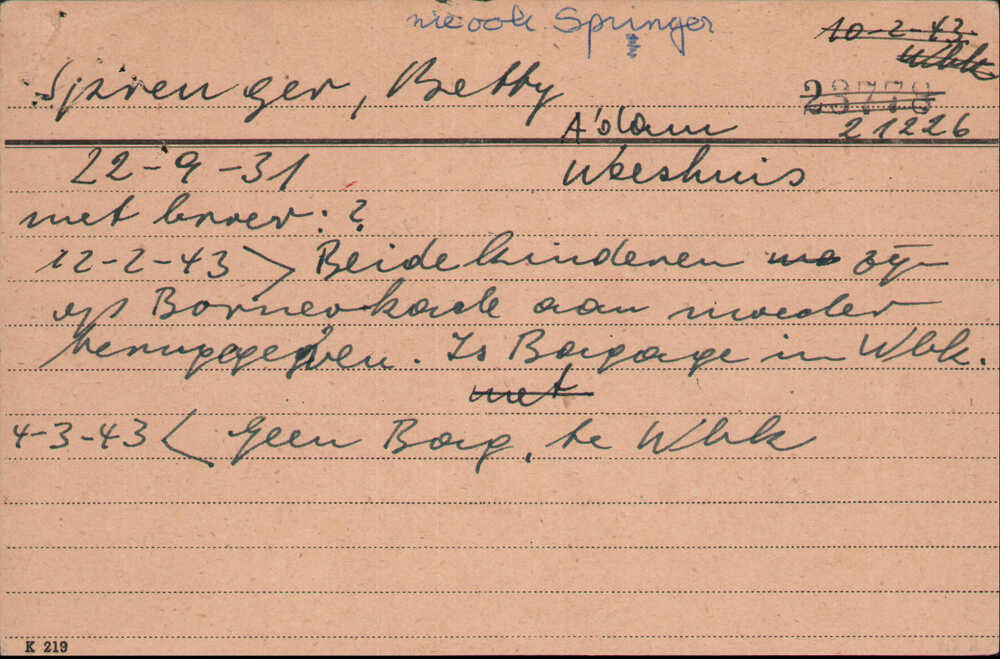 zie ook Springer
10-2-43
Wbk
Sprenger, Betty
23778
A'dam
21226
22-9-31
Weeshuis
met broer: ?
12-2-43 > Beide kinderen zijn
op Borneokade aan moeder
teruggegeven. Is Bagage in Wbk.
met
4-3-43 < Geen Bag. te Wbk
K 219